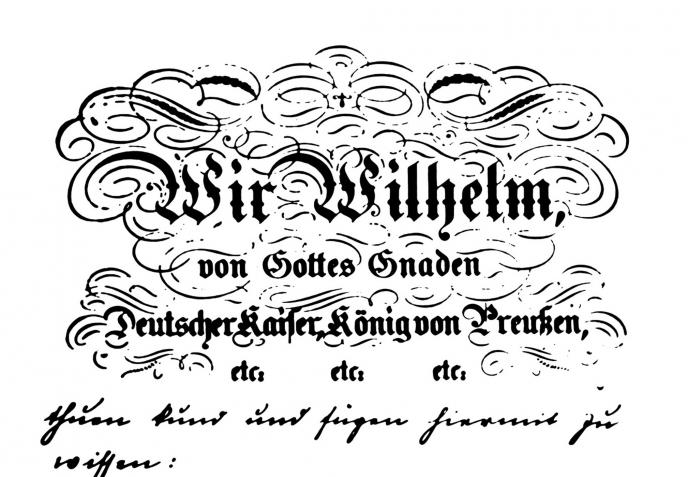 Wir Wilhelm,
von Gottes Gnaden
Deutscher Kaiser, König von Preußen,
etc: etc: etc:
thuen kund und fügen hiermit zu
wissen: